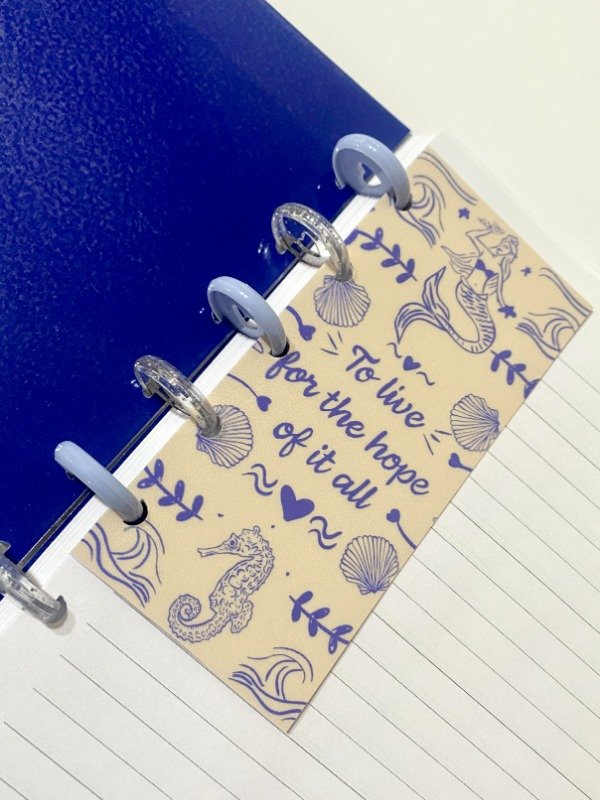 To live
for the hope
of it all